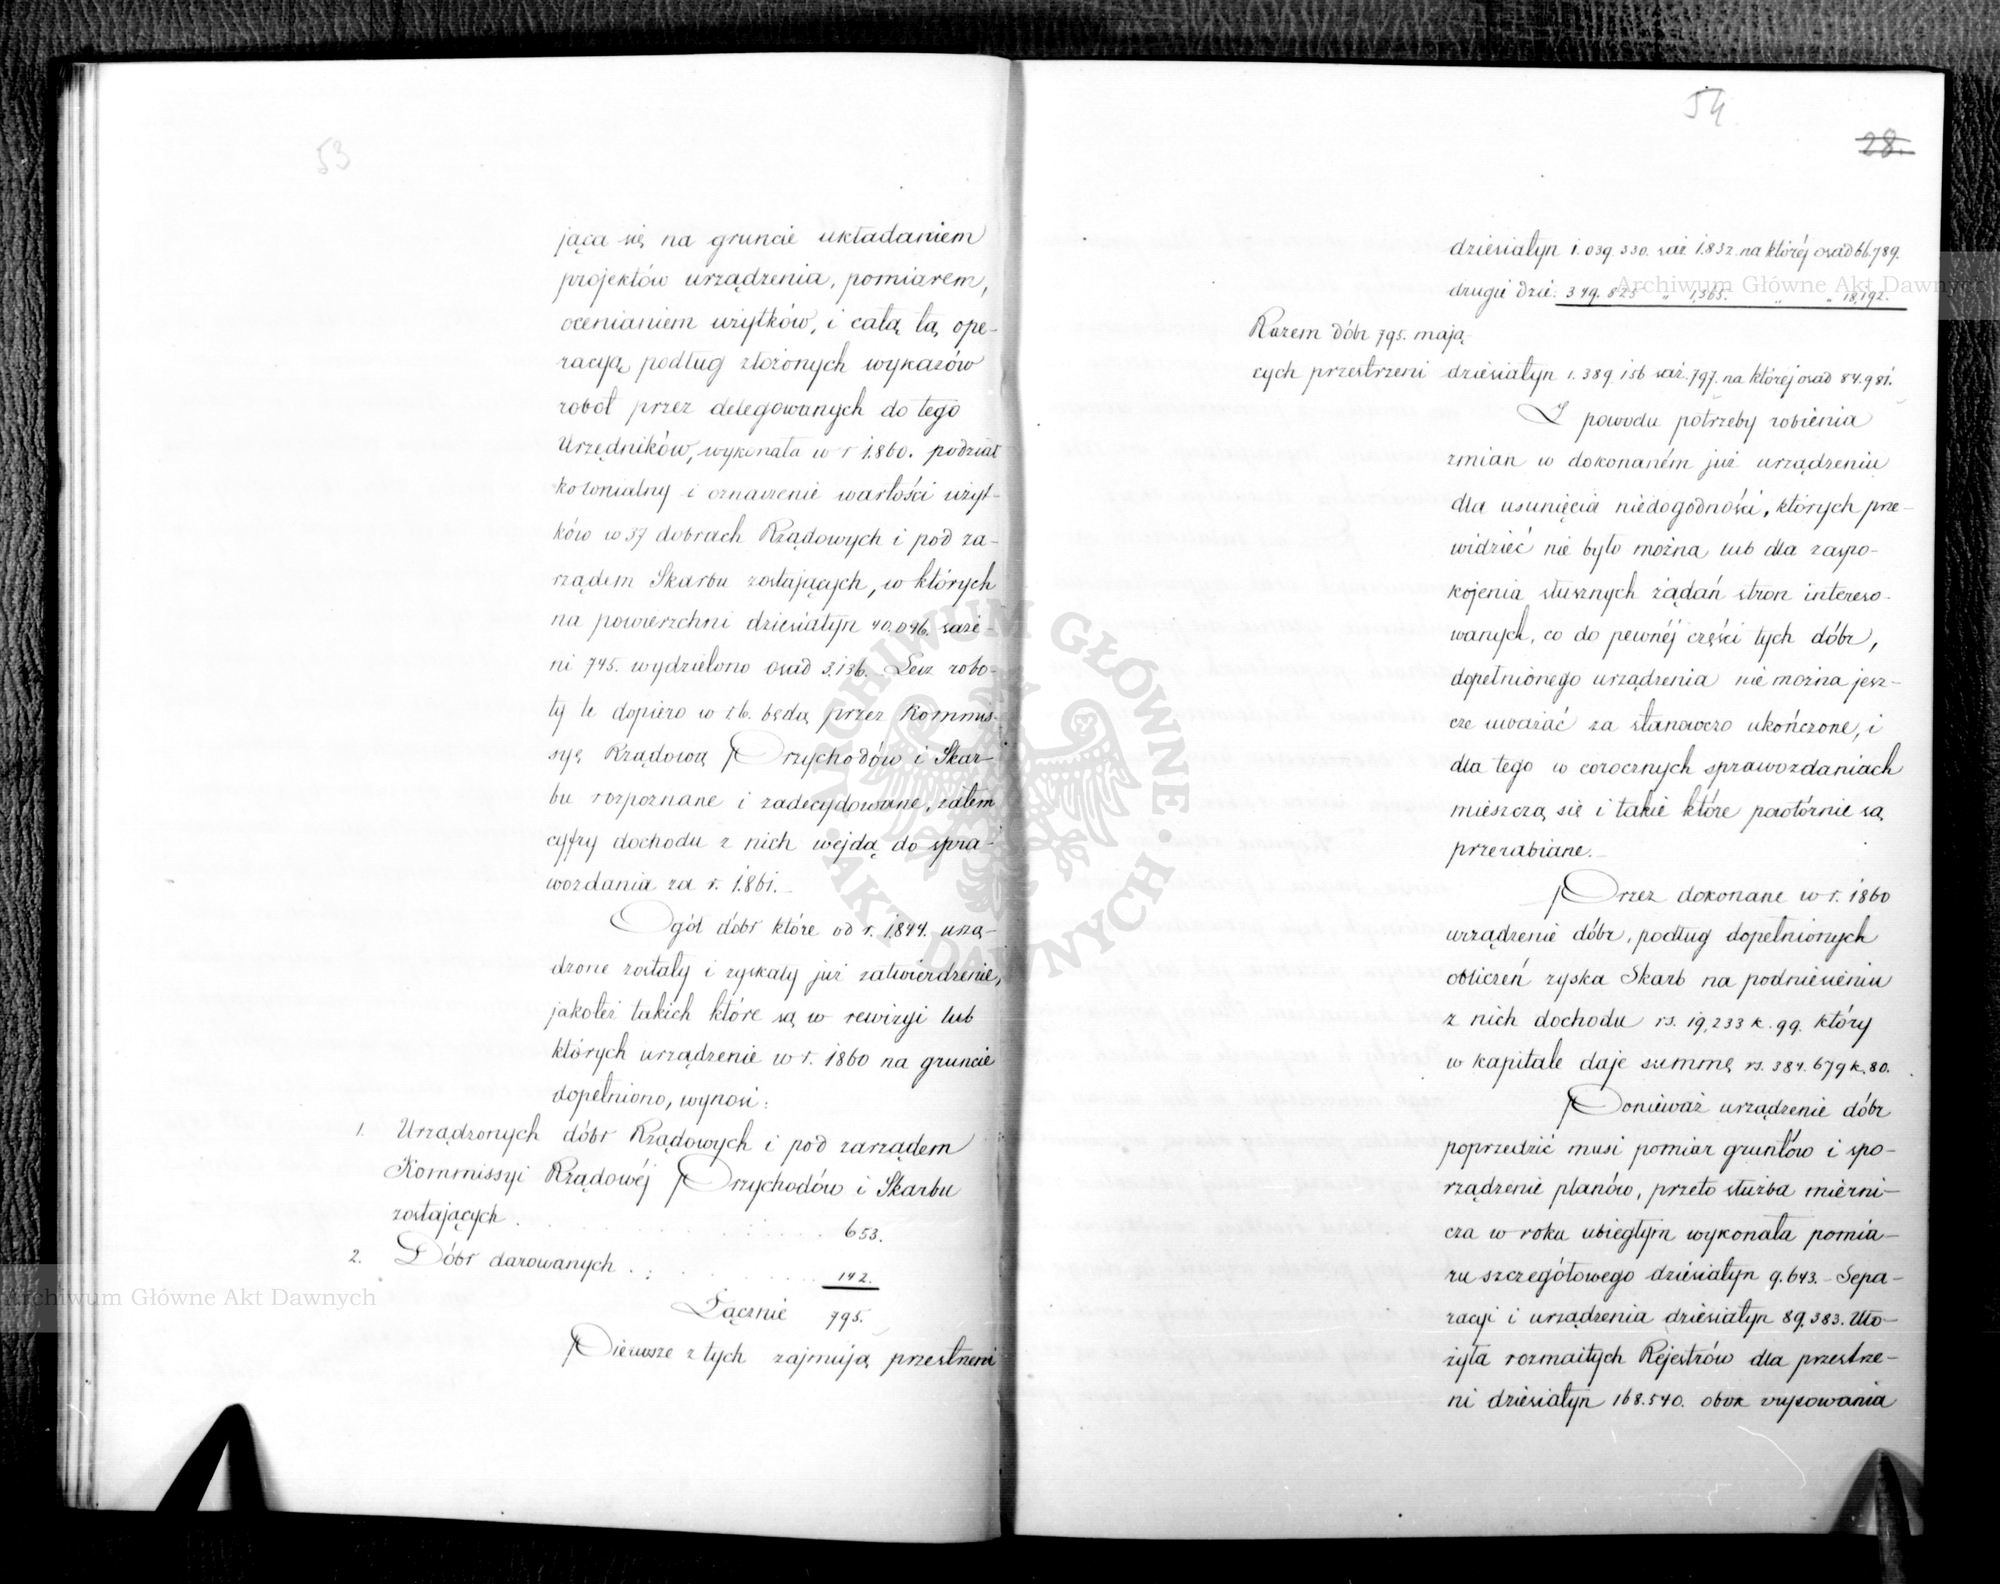 53
jąca się na gruncie układaniem
projektów urządzenia, pomiarem,
ocenianiem użytków, i całą tą ope-
racyą podług złożonych wykazów
robót przez delegowanych do tego
Urzędników, wykonała w r 1.860. podział
kolonialny i oznaczenie wartości użyt-
ków w 37 dobrach Rządowych i pod za-
rządem Skarbu zostających, w których
na powierzchni dziesiatyn 40.046. saże-
ni 745. wydzielono osad 3.136. Lecz robo-
ty te dopiero w r.b. będą przez Kommis-
syę Rządową Przychodów i Skar-
bu rozpoznane i zadecydowane, zatem
cyfry dochodu z nich wejdą do spra-
wozdania za r. 1.861.
Ogół dóbr które od r. 1.844. urzą-
dzone zostały i zyskały już zatwierdzenie,
jakoteż takich które są w rewizyi lub
których urządzenie w r. 1860 na gruncie
dopełniono, wynosi:
1. Urządzonych dóbr Rządowych i pod zarządem
Kommissyi Rządowéj Przychodów i Skarbu
zostających . . . . . . . 653.
2. Dóbr darowanych . . . . . . 142.
Łącznie 795.
Pierwsze z tych zajmują przestrzeni
54
28.
dziesiatyn 1.039.330. saż 1.832. na któréj osad 66.789.
drugie dzie: 349.825 " 1,565. " " 18,192.
Razem dóbr 795. mają
cych przestrzeni dziesiatyn 1.389.156 saż. 797. na któréj osad 84.981.
Z powodu potrzeby robienia
zmian w dokonaném już urządzeniu
dla usunięcia niedogodności, których prze-
widzieć nie było można lub dla zaspo-
kojenia słusznych żądań stron intereso-
wanych, co do pewnéj części tych dóbr,
dopełnionego urządzenia nie można jesz-
cze uważać za stanowczo ukończone, i
dla tego w corocznych sprawozdaniach
mieszczą się i takie które powtórnie są
przerabiane.
Przez dokonane w r. 1860
urządzenie dóbr, podług dopełnionych
obliczeń zyska Skarb na podniesieniu
z nich dochodu rs. 19,233 k. 99. który
w kapitale daje summę rs. 384.679 k. 80.
Ponieważ urządzenie dóbr
poprzedzić musi pomiar gruntów i spo-
rządzenie planów, przeto służba mierni-
cza w roku ubiegłym wykonała pomia-
ru szczegółowego dziesiatyn 9.643. Sepa-
racyi i urządzenia dziesiatyn 89.383. Uło-
żyła rozmaitych Rejestrów dla przestrze-
ni dziesiatyn 168.540. obok rysowania
Archiwum Główne Akt Dawnych
Archiwum Główne Akt Dawnych
ARCHIWUM GŁÓWNE AKT DAWNYCH